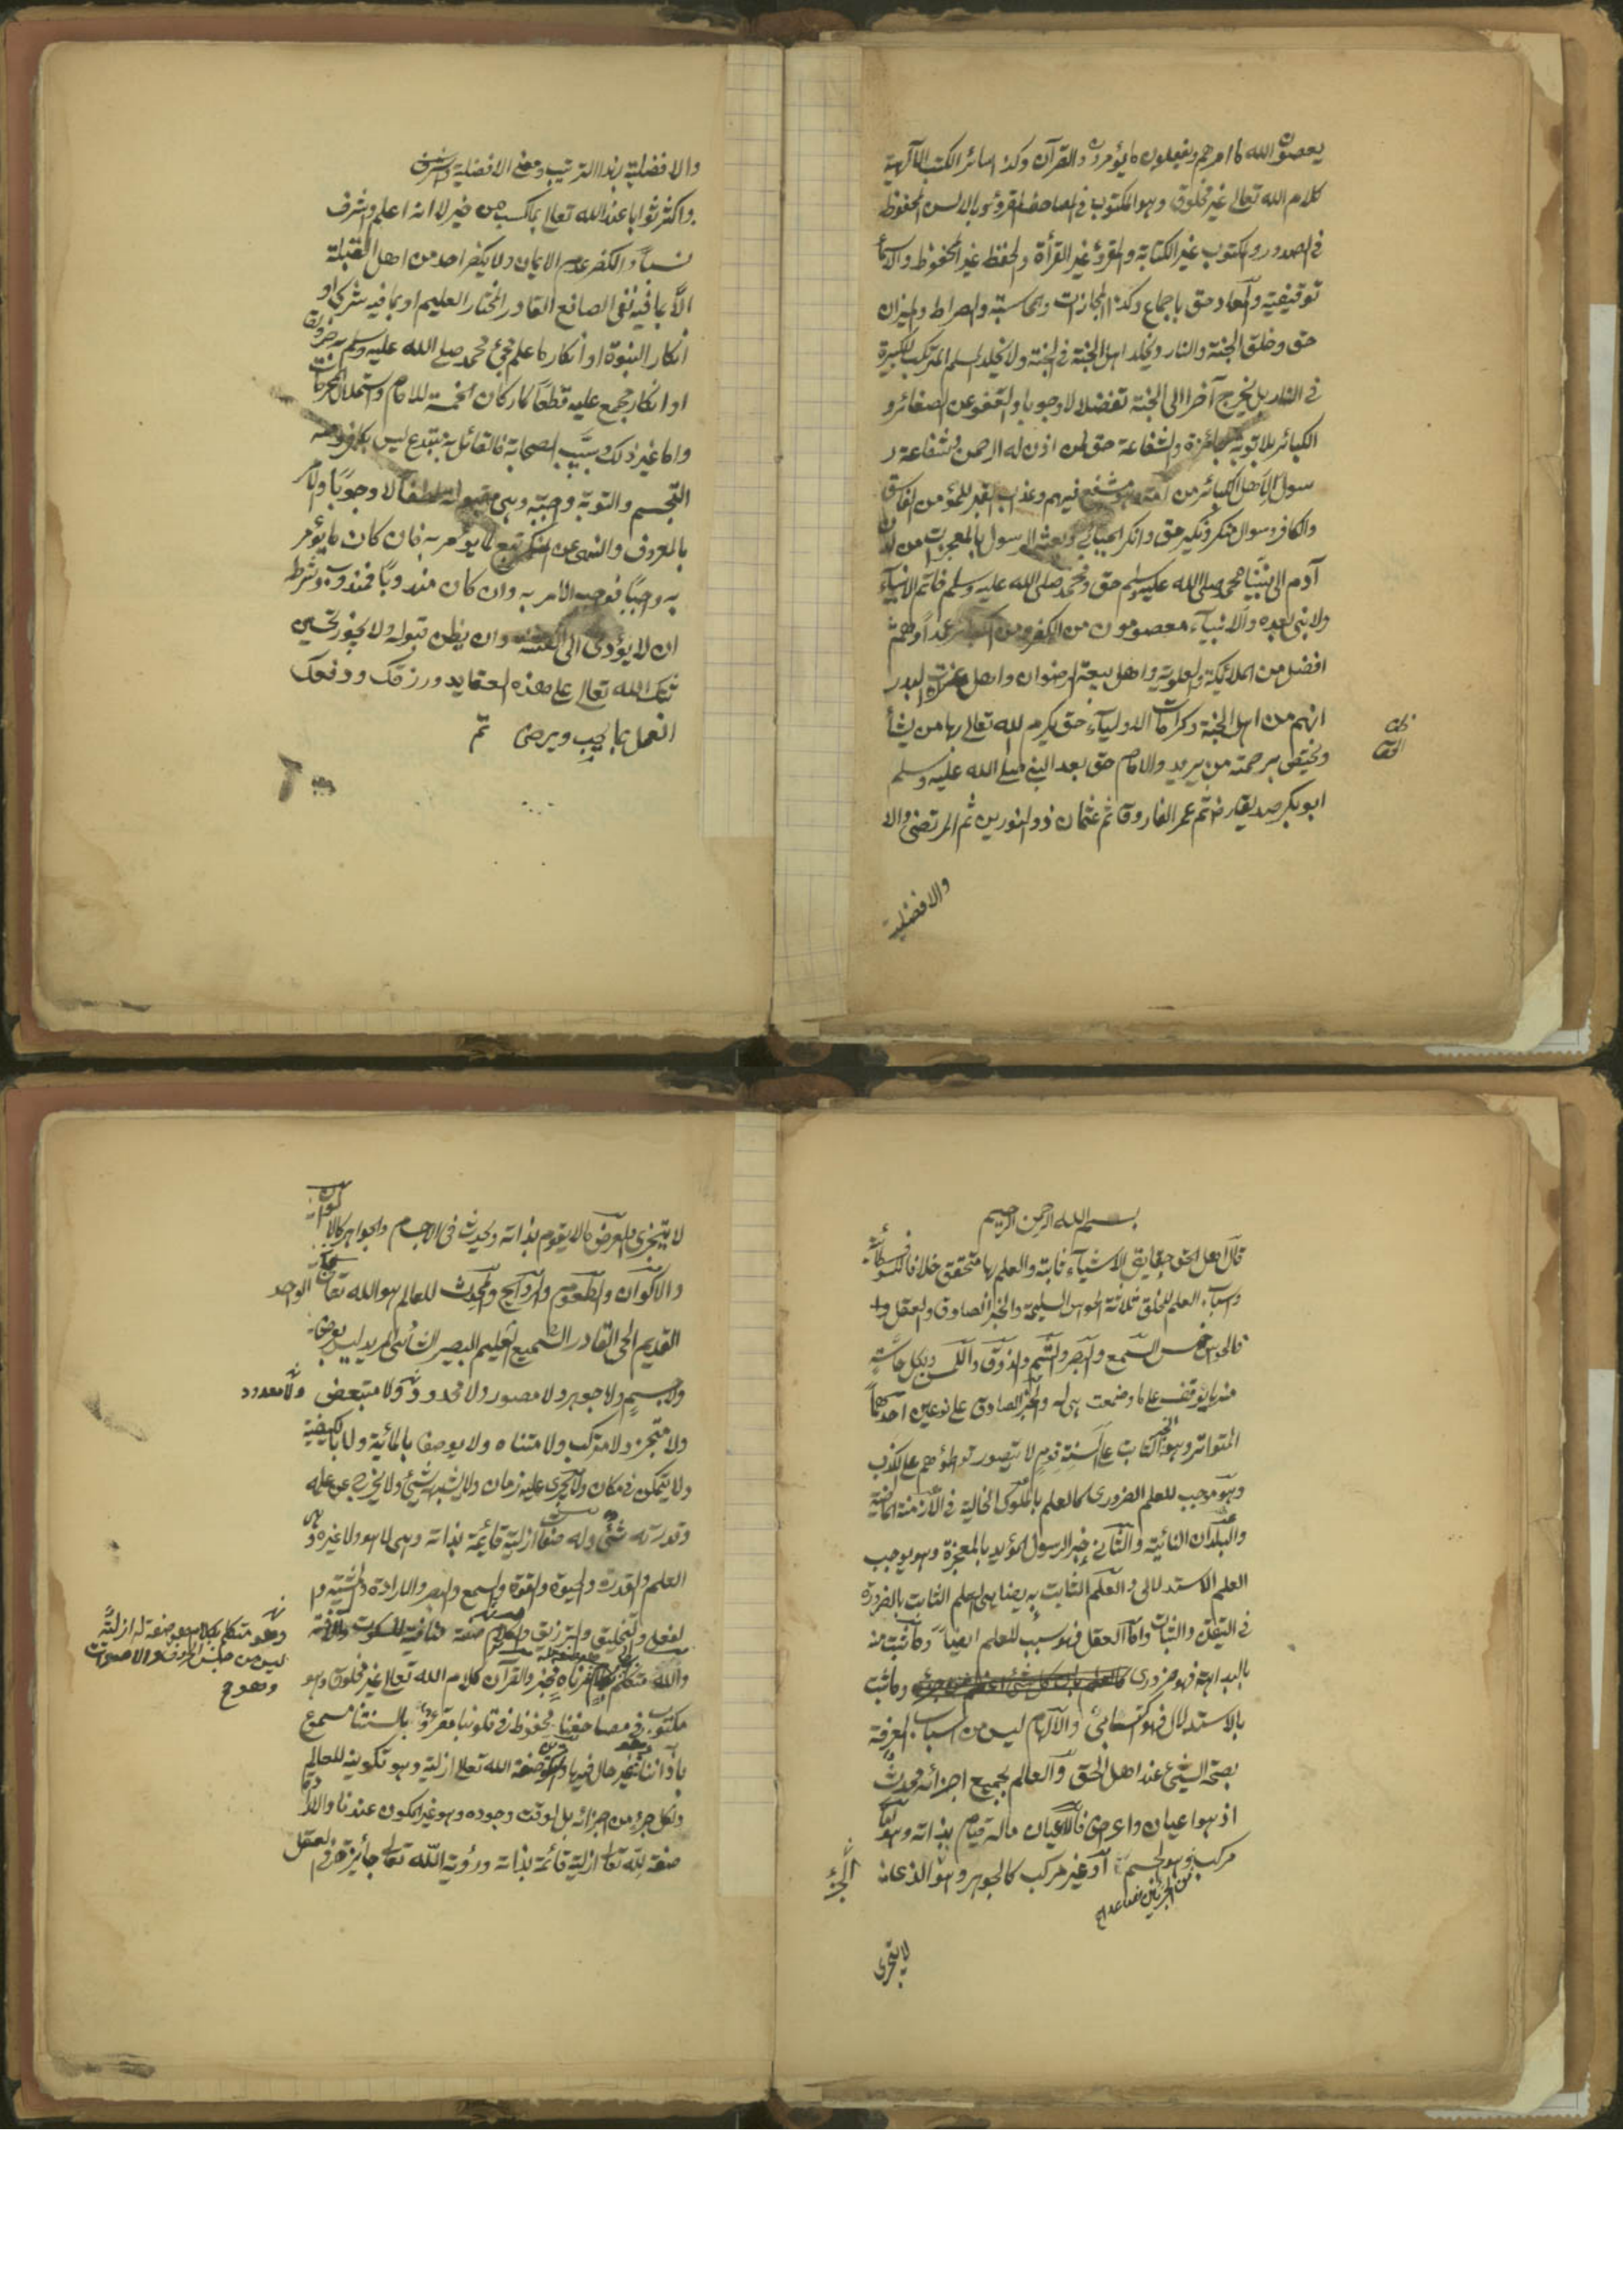 يعصون الله ما امرهم ويفعلون ما يؤمرون والقرآن وكذا سائر الكتب الالهية
كلام الله تعالى غير مخلوق وهو المكتوب في المصاحف المقروء بالالسن المحفوظ
في الصدور والمكتوب غير الكتابة والمقرؤ غير القرأة والحفظ غير المحفوظ والاسمأ
توقيفية والمعاد حق باجماع وكذا المجازات والمحاسبة والصراط والميزان
حق وخلق الجنة والنار ويخلد اهل الجنة في الجنة ولا يخلد المسلم المرتكب الكبيرة
في النار بل يخرج آخرا الى الجنة تفضلا لا وجوبا والعفو عن الصغائر و
الكبائر بلا توبة جائزة والشفاعة حق لمن اذن له الرحمن وشفاعة ر
سول لاهل الكبائر من امته وهو مشفع فيهم وعذاب القبر للمؤمن الفاسق
والكافر وسوال منكر ونكير حق وانكر الجبائي وبعثة الرسول بالمعجزات من لدن
آدم الى نبينا محمد صلى الله عليه وسلم حق ومحمد صلى الله عليه وسلم خاتم الانبياء
ولا نبي بعده والانبياء معصومون من الكفر ومن الكبائر عمدا وهم
افضل من الملائكة العلوية واهل بيعة الرضوان واهل غزوة البدر
انهم من اهل الجنة وكرامات الاولياء حق يكرم الله تعالى بها من يشأ
ويختص برحمته من يريد والامام حق بعد النبي صلى الله عليه وسلم
ابو بكر صديق رض ثم عمر الفاروق ثم عثمان ذو النورين ثم المرتضى والا
والافضلية
والافضلية بهذا الترتيب ومعنى الافضلية
واكثر ثوابا عند الله تعالى بما كسب من خير لا انه اعلم واشرف
نسباً والكفر عدم الايمان ولا يكفر احد من اهل القبلة
الا بما فيه نفي الصانع القادر المختار العليم او بما فيه شرك او
انكار النبوة او انكار ما علم مجئ محمد صلى الله عليه وسلم به ضرورة
او انكار مجمع عليه قطعا كاركان الخمسة للاسلام واستحلال المحرمات
واما غير ذلك وسب الصحابة فالقائل به مبتدع ليس بكافر ومنه
التجسيم والتوبة واجبة وهي مقبولة لطفا لا وجوبا والامر
بالمعروف والنهي عن المنكر تبع لما يؤمر به فان كان ما يؤمر
به واجباً فوجب الامر به وان كان مندوبا فمندوب وشرطه
ان لا يؤدى الى الفتنة وان يظن قبوله ولا يجوز تجسس
ثبتك الله تعالى على هذه العقايد ورزقك ووفقك
العمل بما يحب ويرضى تم
بسم الله الرحمن الرحيم
قال اهل الحق حقايق الاشياء ثابتة والعلم بها متحقق خلافا للسوفسطائية
واسباب العلم للخلق ثلاثة الحواس السليمة والخبر الصادق والعقل
فالحواس خمس السمع والبصر والشم والذوق واللمس وبكل حاسة
منها يوقف على ما وضعت هي له والخبر الصادق على نوعين احدهما
المتواتر وهو الخبر الثابت على السنة قوم لا يتصور تواطؤهم على الكذب
وهو موجب للعلم الضرورى كالعلم بالملوك الخالية في الازمنة الماضية
والبلدان النائية والثاني خبر الرسول المؤيد بالمعجزة وهو يوجب
العلم الاستدلالى والعلم الثابت به يضاهى العلم الثابت بالضرورة
في التيقن والثبات واما العقل فهو سبب للعلم ايضا وما ثبت منه
بالبداهة فهو ضرورى كالعلم بان كل شئ اعظم من جزئه وما ثبت
بالاستدلال فهو اكتسابى والالهام ليس من اسباب المعرفة
بصحة الشئ عند اهل الحق والعالم بجميع اجزائه محدث
اذ هو اعيان واعراض فالاعيان ما له قيام بذاته وهو اما
مركب وهو الجسم او غير مركب كالجوهر وهو الذى
من الجزئين فصاعدا
الجزء
لا يتجزى
لا يتجزى والعرض ما لا يقوم بذاته ويحدث في الاجسام والجواهر كالالوان
والاكوان والطعوم والروايح والمحدث للعالم هو الله تعالى الواحد
القديم الحى القادر السميع العليم البصير الشائى المريد ليس بعرض
ولا جسم ولا جوهر ولا مصور ولا محدود ولا متبعض ولا معدود
ولا متجز ولا مركب ولا متناه ولا يوصف بالمائية ولا بالكيفية
ولا يتمكن في مكان ولا يجرى عليه زمان ولا يشبهه شئ ولا يخرج عن علمه
وقدرته شئ وله صفات ازلية قائمة بذاته وهى لا هو ولا غيره وهى
العلم والقدرة والحيوة والقوة والسمع والبصر والارادة والمشية وا
لفعل والتخليق والترزيق والكلام صفة منافية للسكوت والآفة
وهو متكلم بكلام هو صفة له ازلية
ليس من جنس الحروف والاصوات
وهو
والله متكلم بها آمر ناه مخبر والقرآن كلام الله تعالى غير مخلوق وهو
مكتوب في مصاحفنا محفوظ في قلوبنا مقروء بالسنتنا مسموع
باذاننا غير حال فيها والتكوين صفة الله تعالى ازلية وهو تكوينه للعالم
ولكل جزء من اجزائه بل لوقت وجوده وهو غير المكون عندنا والارادة
صفة لله تعالى ازلية قائمة بذاته ورؤية الله تعالى جائزة في العقل